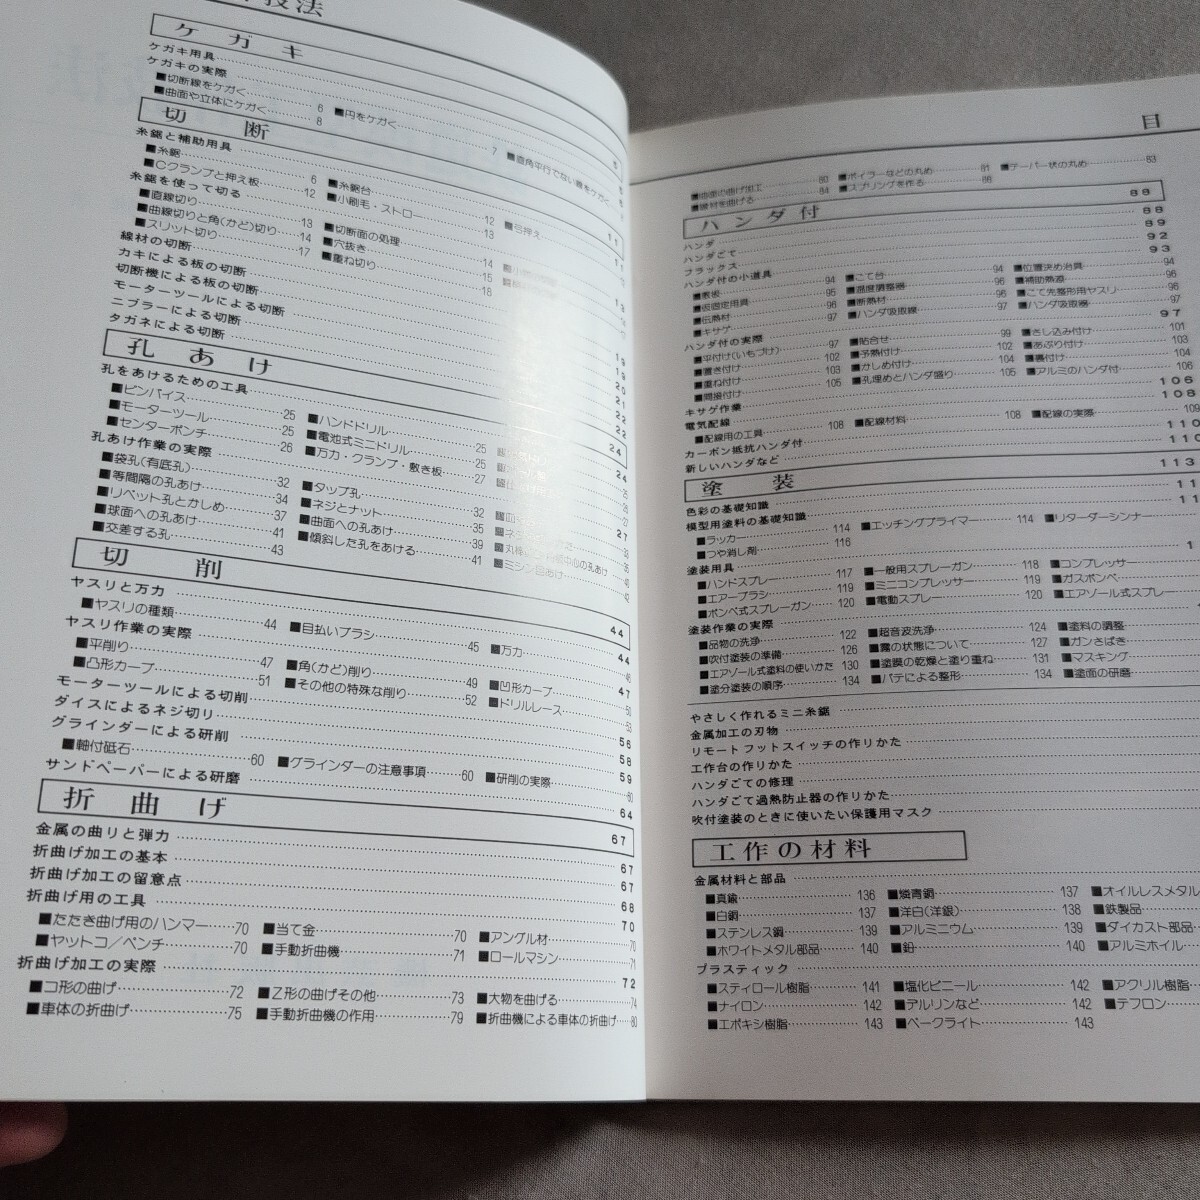 技法
ケガキ
ケガキ用具
ケガキの実際
■切断線をケガく 6 ■円をケガく 7 ■直角平行でない線をケガく
■曲面や立体にケガく 8
切断
糸鋸と補助用具
■糸鋸 6 ■糸鋸台 12 ■弓押え
■Cクランプと押え板 12 ■小刷毛・ストロー 13
糸鋸を使って切る 11
■直線切り 13 ■切断面の処理 14
■曲線切りと角(かど)切り 14 ■穴抜き 15
■スリット切り 17 ■重ね切り 18
線材の切断
カキによる板の切断 19
切断機による板の切断
モーターツールによる切断
ニブラーによる切断
タガネによる切断 22
孔あけ 24
孔をあけるための工具 24
■ピンバイス 25 ■ハンドドリル 25
■モーターツール 25 ■電池式ミニドリル 25
■センターポンチ 26 ■万力・クランプ・敷き板 27
孔あけ作業の実際 27
■袋孔(有底孔) 32 ■タップ孔 32
■等間隔の孔あけ 34 ■ネジとナット 35
■リベット孔とかしめ 37 ■曲面への孔あけ 39
■球面への孔あけ 41 ■傾斜した孔をあける 41 ■ミシン目あけ 42
■交差する孔 43
切削 44
ヤスリと万力 44
■ヤスリの種類 44 ■目払いブラシ 45 ■万力 46
ヤスリ作業の実際 47
■平削り 47 ■角(かど)削り 49 ■凹形カーブ 50
■凸形カーブ 51 ■その他の特殊な削り 52 ■ドリルレース 53
モーターツールによる切削 56
ダイスによるネジ切り 58
グラインダーによる研削 59
■軸付砥石 60 ■グラインダーの注意事項 60 ■研削の実際 60
サンドペーパーによる研磨 64
折曲げ 67
金属の曲りと弾力 67
折曲げ加工の基本 67
折曲げ加工の留意点 68
折曲げ用の工具 70
■たたき曲げ用のハンマー 70 ■当て金 70 ■アングル材 70
■ヤットコ/ペンチ 70 ■手動折曲機 71 ■ロールマシン 71
折曲げ加工の実際 72
■コ形の曲げ 72 ■Z形の曲げその他 73 ■大物を曲げる 74
■車体の折曲げ 75 ■手動折曲機の作用 79 ■折曲機による車体の折曲げ 80
目
■曲面の曲げ加工 80 ■ボイラーなどの丸め 81 ■テーパー状の丸め 83
■線材を曲げる 84 ■スプリングを作る 86
ハンダ付 88
ハンダ 88
ハンダごて 89
フラックス 92
ハンダ付の小道具 93
■敷板 94 ■こて台 94 ■位置決め治具 94
■仮固定用具 95 ■温度調整器 96 ■補助熱源 96
■伝熱材 96 ■断熱材 96 ■こて先整形用ヤスリ 96
■キサゲ 97 ■ハンダ吸取線 97 ■ハンダ吸取器 97
ハンダ付の実際 97
■平付け(いちづけ) 97 ■貼合せ 99 ■さし込み付け 101
■置き付け 102 ■予熱付け 102 ■あぶり付け 103
■重ね付け 103 ■かしめ付け 104 ■裏付け 104
■間接付け 105 ■孔埋めとハンダ盛り 105 ■アルミのハンダ付 106
キサゲ作業 106
電気配線 108
■配線用の工具 108 ■配線材料 108 ■配線の実際 109
カーボン抵抗ハンダ付 110
新しいハンダなど 110
塗装 113
色彩の基礎知識
模型用塗料の基礎知識
■ラッカー 114 ■エッチングプライマー 114 ■リターダーシンナー
■つや消し剤 116
塗装用具
■ハンドスプレー 117 ■一般用スプレーガン 118 ■コンプレッサー
■エアーブラシ 119 ■ミニコンプレッサー 119 ■ガスボンベ
■ボンベ式スプレーガン 120 ■電動スプレー 120 ■エアゾール式スプレー
塗装作業の実際
■品物の洗浄 122 ■超音波洗浄 124 ■塗料の調整
■吹付塗装の準備 126 ■霧の状態について 127 ■ガンさばき
■エアゾール式塗料の使いかた 130 ■塗膜の乾燥と塗り重ね 131 ■マスキング
■塗分塗装の順序 134 ■パテによる整形 134 ■塗面の研磨
やさしく作れるミニ糸鋸
金属加工の刃物
リモートフットスイッチの作りかた
工作台の作りかた
ハンダごての修理
ハンダごて過熱防止器の作りかた
吹付塗装のときに使いたい保護用マスク
工作の材料
金属材料と部品
■真鍮 136 ■燐青銅 137 ■オイルレスメタル
■白銅 137 ■洋白(洋銀) 138 ■鉄製品
■ステンレス鋼 139 ■アルミニウム 139 ■ダイカスト部品
■ホワイトメタル部品 140 ■鉛 140 ■アルミホイル
プラスティック
■スティロール樹脂 141 ■塩化ビニール 142 ■アクリル樹脂
■ナイロン 142 ■デルリンなど 142 ■テフロン
■エポキシ樹脂 143 ■ベークライト 143